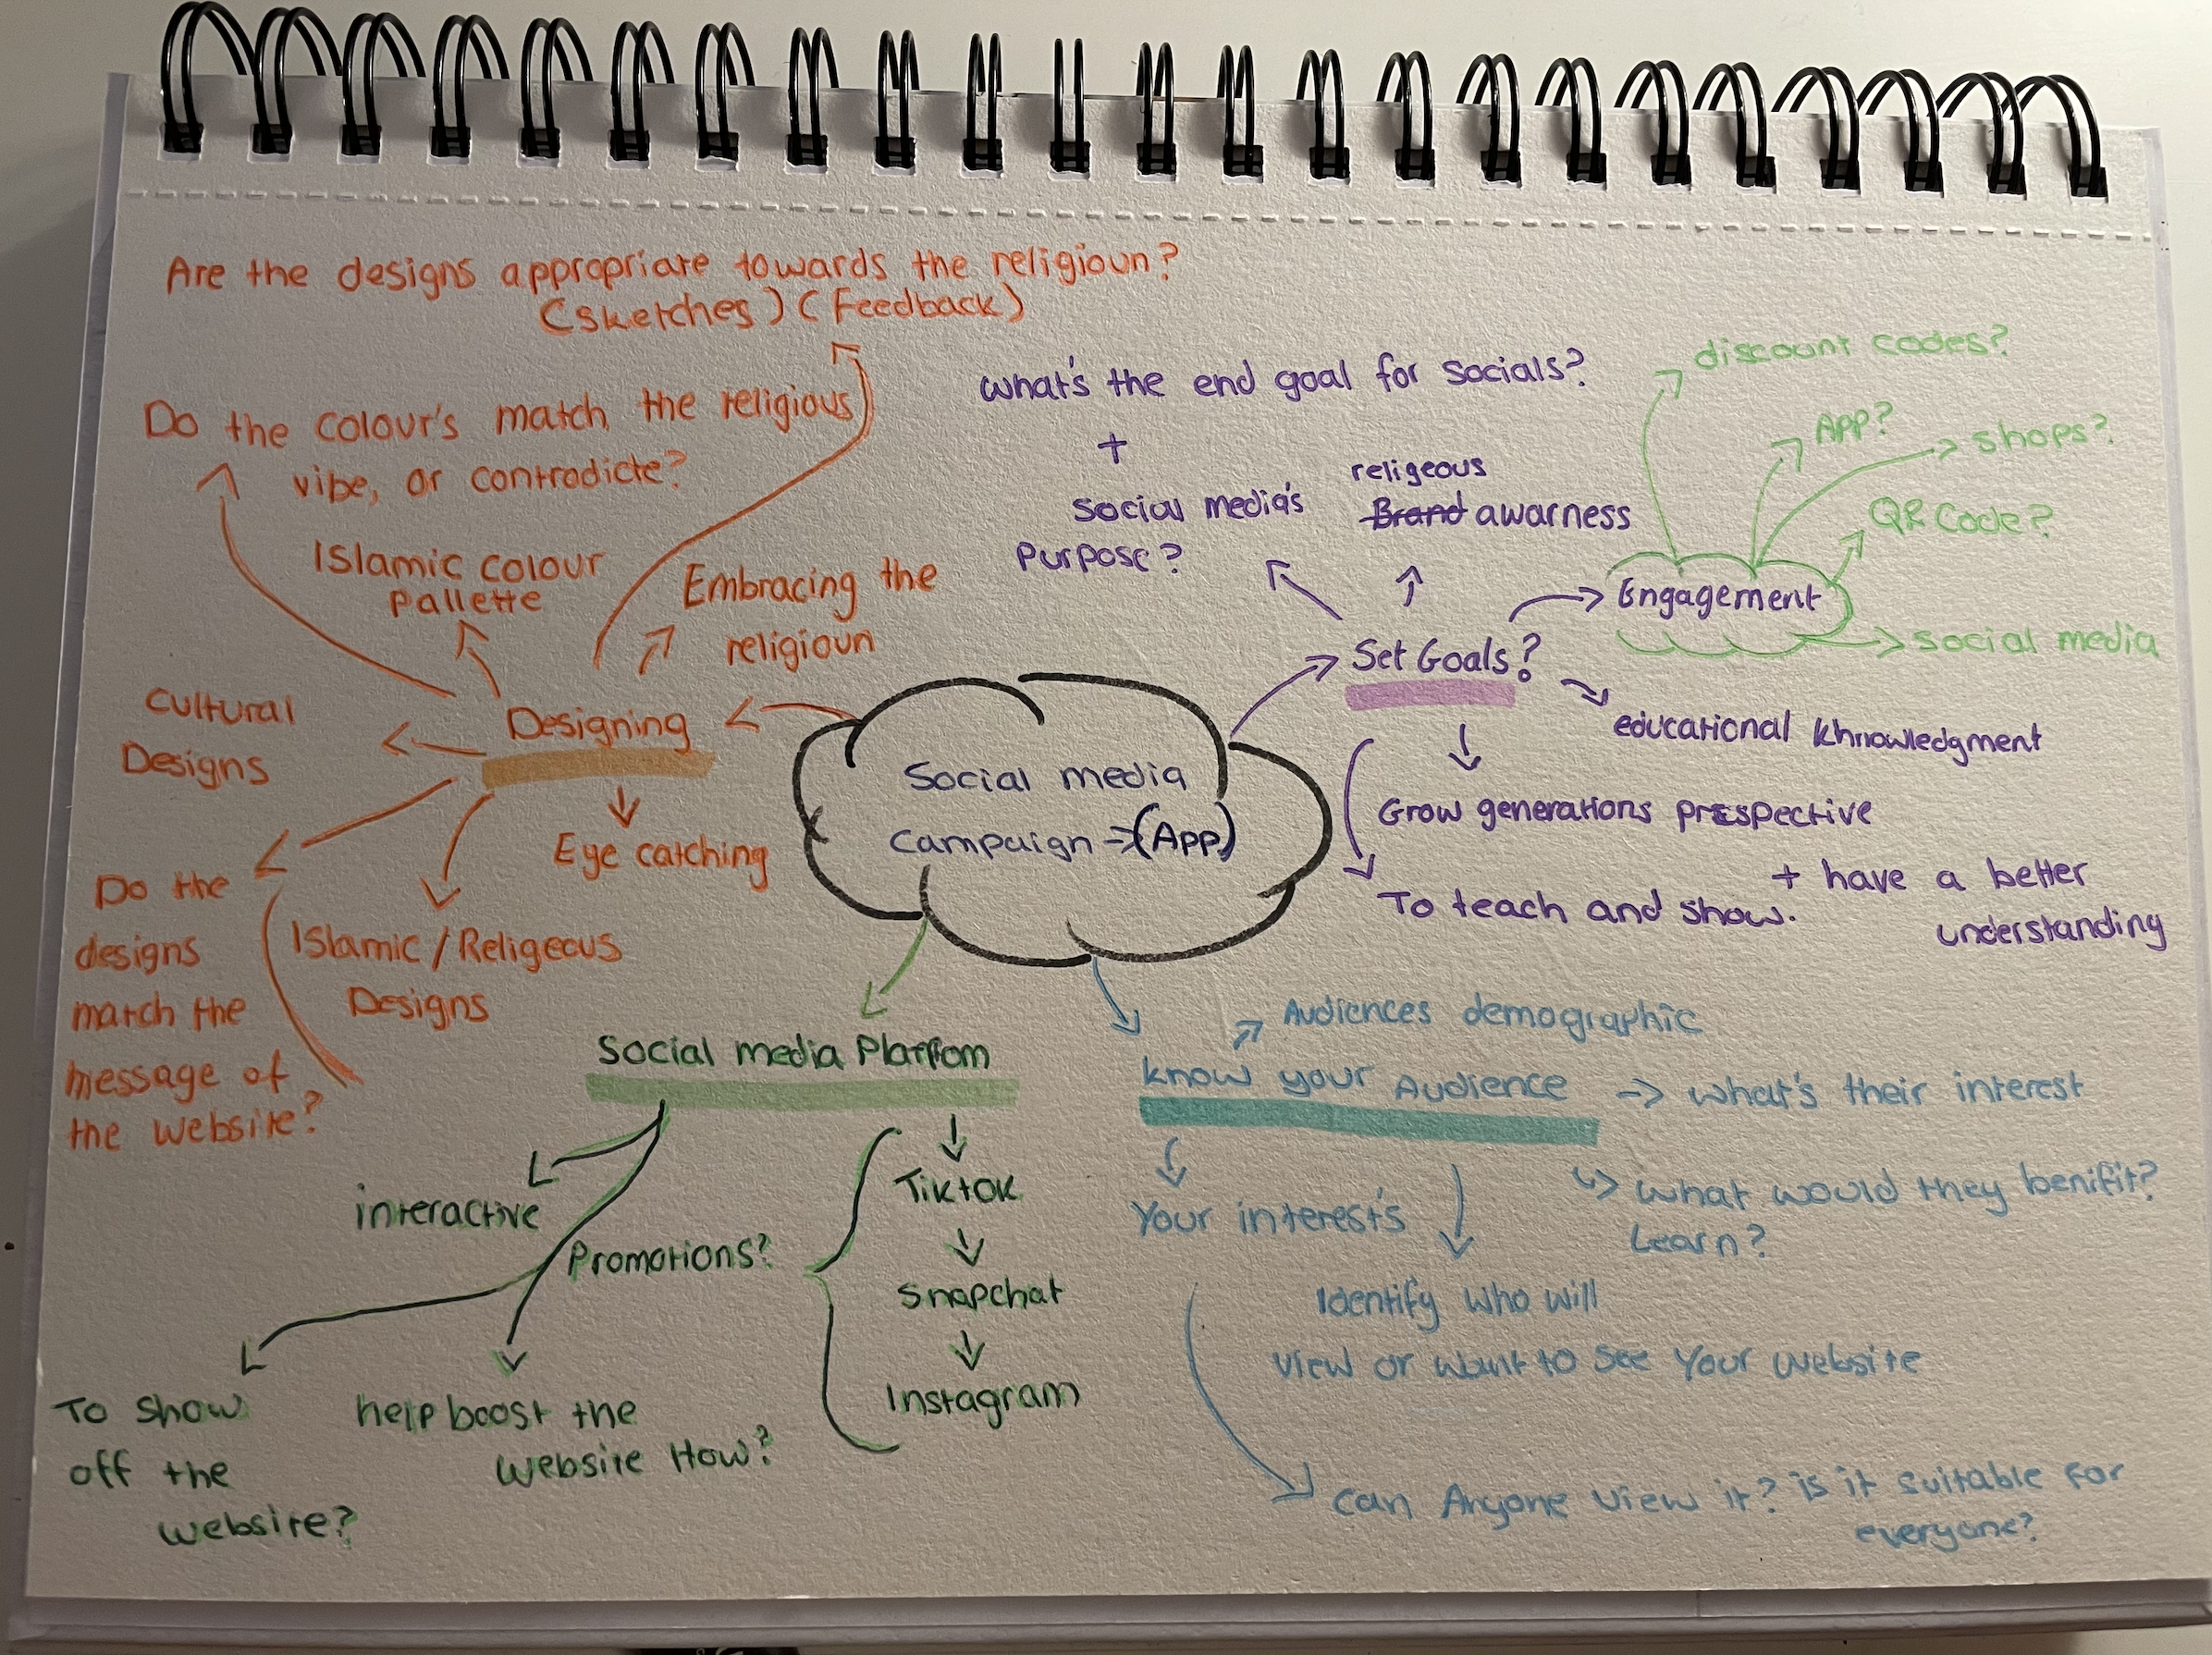 Are the designs appropriate towards the religioun?
(sketches) (Feedback)
Do the colour's match the religious
vibe, or contradicte?
Islamic colour
pallette
Embracing the
religioun
Cultural
Designs
Designing
Eye catching
Do the
designs
match the
message of
the website?
Islamic / Religeous
Designs
Social media
campaign → (App)
what's the end goal for socials?
+
Social media's
Purpose?
religeous
Brand awarness
Set Goals?
Engagement
discount codes?
App?
shops?
QR Code?
social media
educational khnowledgment
Grow generations prespective
To teach and show.
+ have a better
understanding
Social media Platfrom
interactive
Promotions?
Tiktok
Snapchat
Instagram
To show
off the
website?
help boost the
website How?
Audiences demographic
know your Audience
what's their interest
Your interest's
what would they benifit?
Learn?
Identify who will
view or want to see your website
can Anyone view it? is it suitable for
everyone?